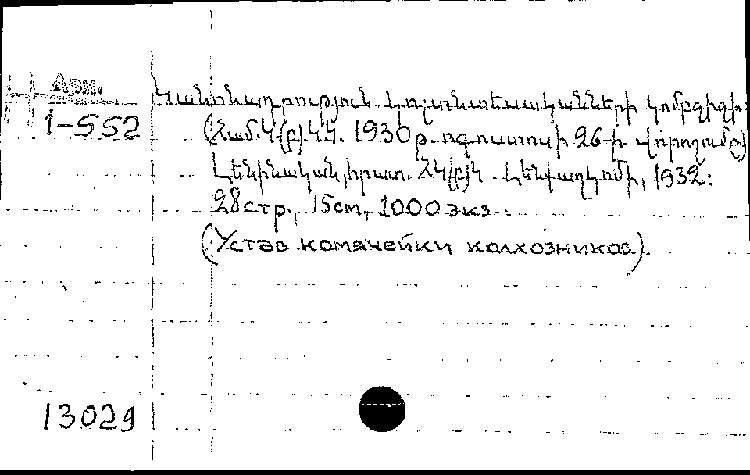 Арм.
1-552
Կանոնադրություն կոլտնտեսականների կոմբջիջի
(Համ.Կ(բ)Կ Կկ. 1930թ. օգոստոսի 26-ի վորոշումը)
Լենինական, հրատ. ՀԿ(բ)Կ Լենքաղկոմի, 1932:
28 стр., 15 cm, 1000 экз.
(Устав комячейки колхозников).
13029